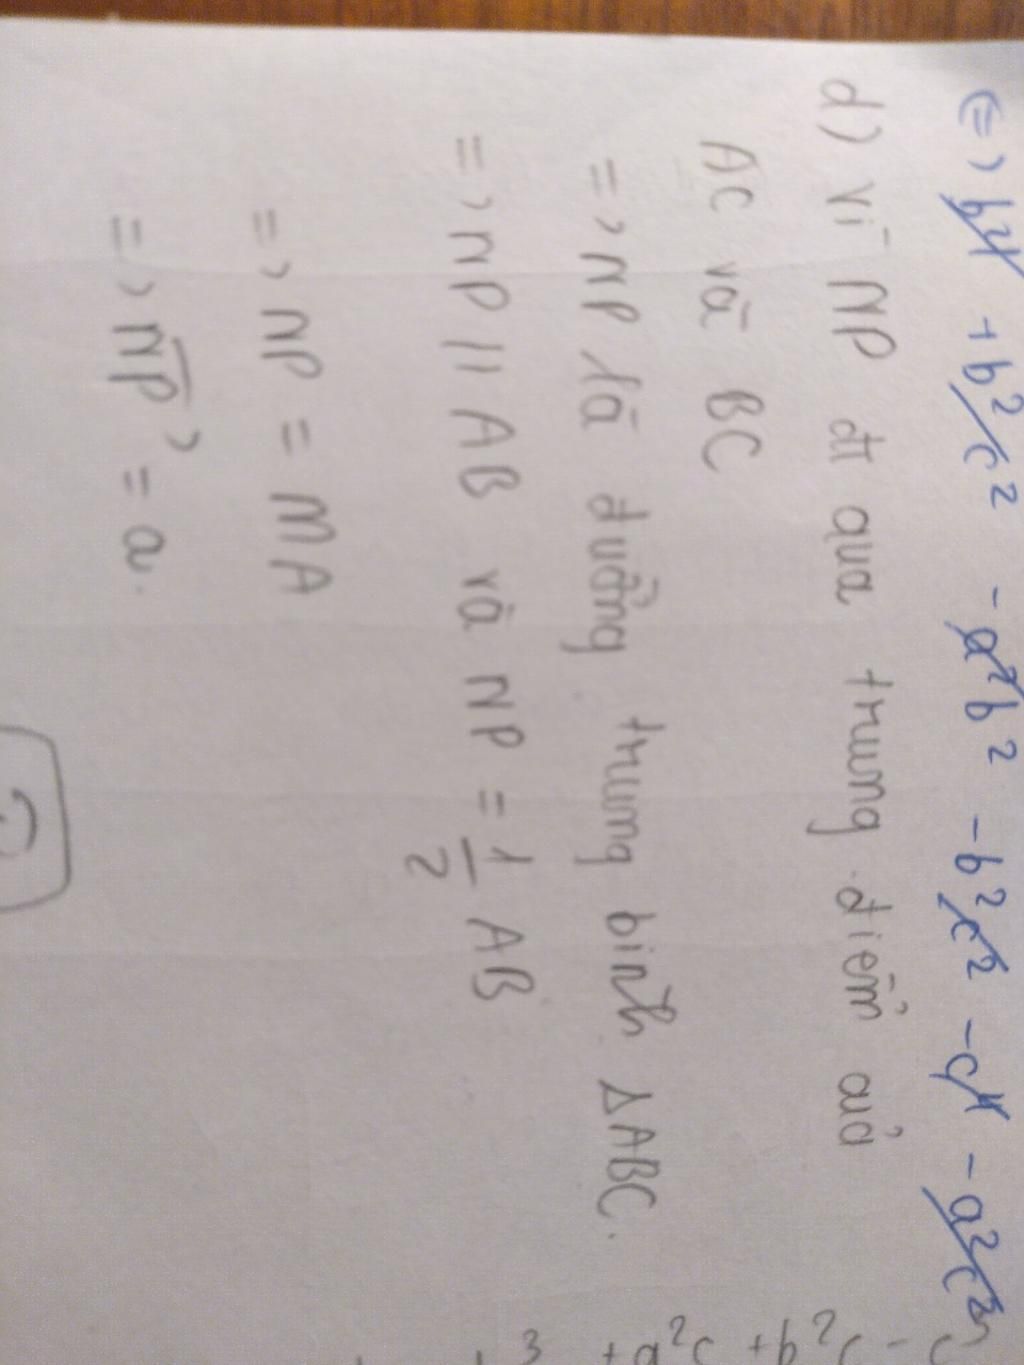 <=> b⁴ + b²c² - a²b² - b²c² - c⁴ - a²c²
d) Vì NP đi qua trung điểm của
AC và BC
=> NP là đường trung bình ΔABC.
=> NP // AB và NP = 1/2 AB
=> NP = MA
=> NP = a.
3 + a²c + b²c - c